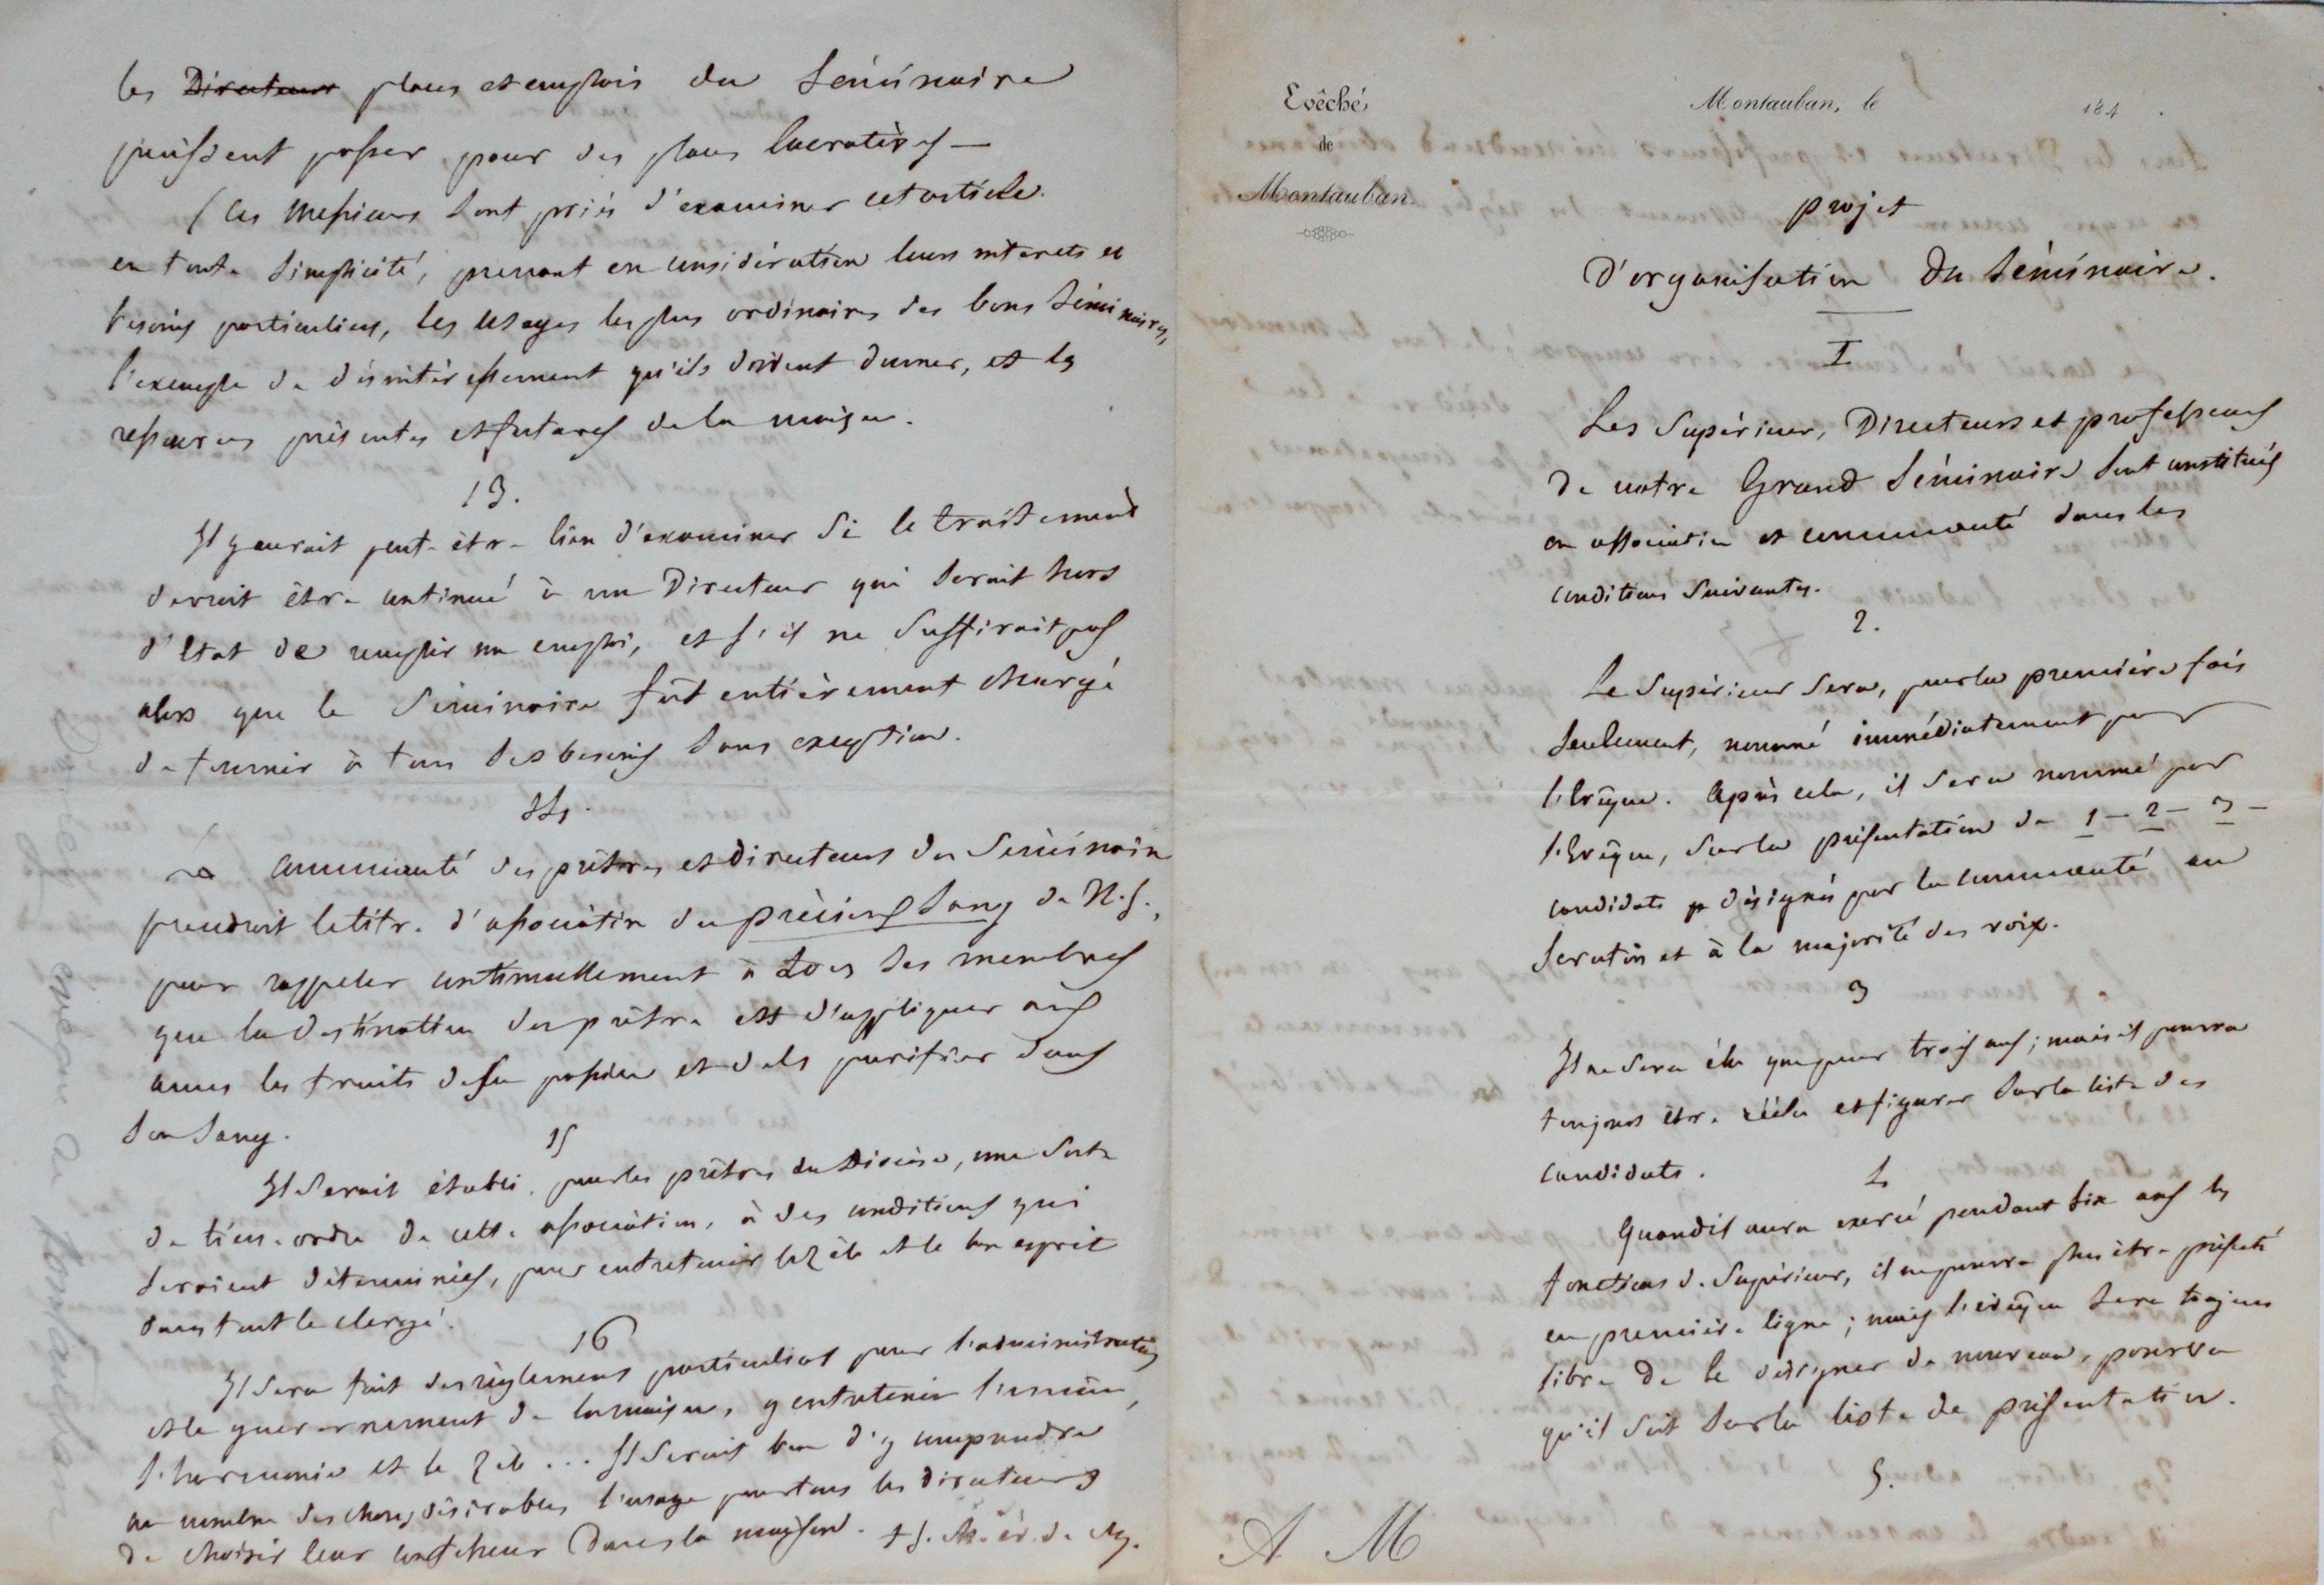 les Directeurs places et emplois du Séminaire
puissent passer pour des places lucratives —
(ces messieurs sont priés d'examiner cet article
en toute simplicité, prenant en considération leurs interets et
besoins particuliers, les usages les plus ordinaires des bons séminaires,
l'exemple de désintéressement qu'ils doivent donner, et les
ressources présentes et futures de la maison.
13.
Il y aurait peut-être lieu d'examiner si le traitement
devroit être continué à un Directeur qui serait hors
d'état de remplir un emploi, et s'il ne suffirait pas
alors que le Séminaire fût entièrement chargé
de fournir à tous ses besoins sans exception.
14.
La communauté des prêtres et directeurs du Séminaire
prendroit le titre d'association du précieux sang de N.S.,
pour rappeler continuellement à tous ses membres
que la destination du prêtre est d'appliquer aux
ames les fruits de sa passion et de les purifier dans
son sang.
15
Il serait établi, pour les prêtres du Diocèse, une sorte
de tiers-ordre de cette association, à des conditions qui
seroient déterminées, pour entretenir le zèle et le bon esprit
dans tout le clergé.
16
Il sera fait des règlements particuliers pour l'administration
et le gouvernement de la maison, y entretenir l'union,
l'harmonie et le zèle ... Il serait bon d'y comprendre
au nombre des choses désirables l'usage pour tous les directeurs
de choisir leur confesseur dans la maison.
Evêché
de
Montauban.
Montauban, le 184 .
projet
D'organisation du Séminaire.
I
Les Supérieur, Directeurs et professeurs
de notre Grand Séminaire sont constitués
en association et communauté dans les
conditions suivantes.
2.
Le Supérieur sera, pour la première fois
seulement, nommé immédiatement par
l'Evêque. Après cela, il sera nommé par
l'Evêque, sur la présentation de 1 — 2 — 3 —
candidats désignés par la communauté au
scrutin et à la majorité des voix.
3
Il ne sera élu que pour trois ans; mais il pourra
toujours être réélu et figurer sur la liste des
candidats.
4
Quand il aura exercé pendant six ans les
fonctions de Supérieur, il ne pourra plus être présenté
en première ligne; mais l'évêque sera toujours
libre de le désigner de nouveau, pourvu
qu'il soit sur la liste de présentation.
5.
A M